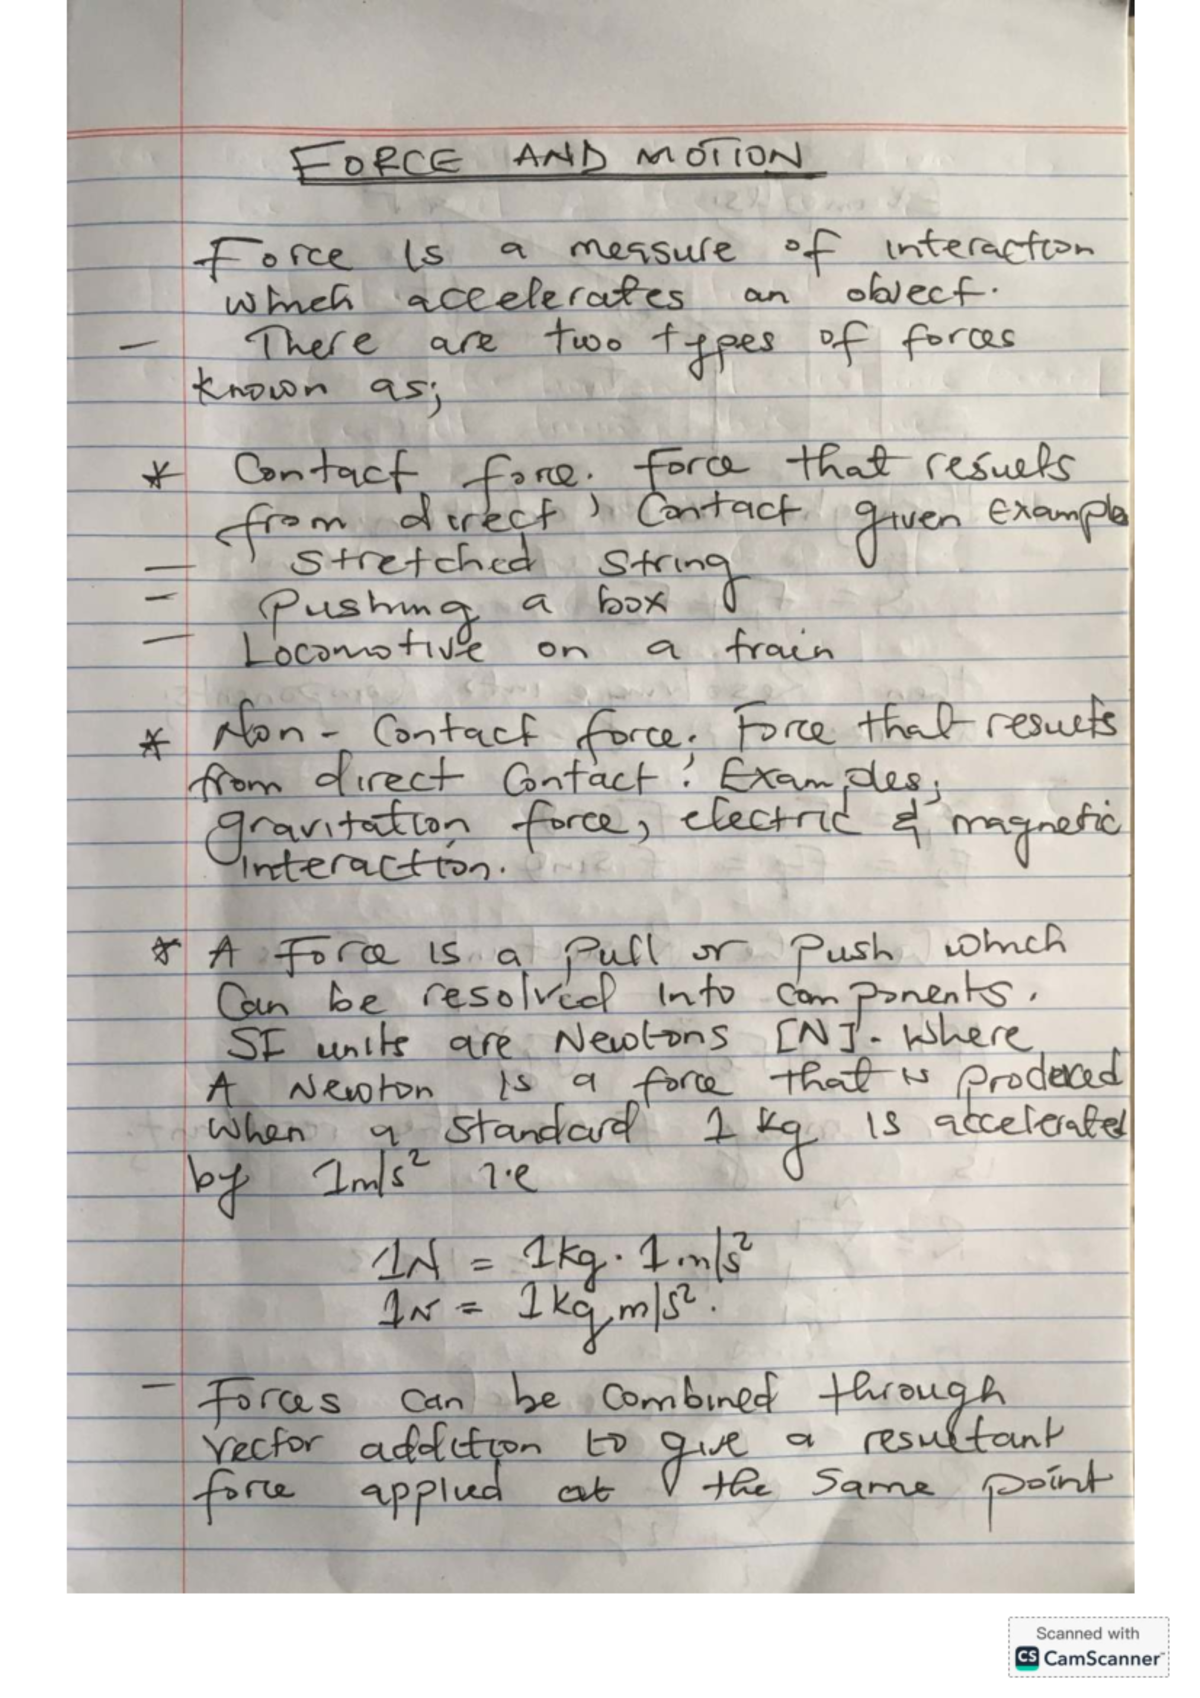 FORCE AND MOTION
Force is a measure of interaction
which accelerates an object.
- There are two types of forces
known as;
* Contact force. Force that results
from direct contact given Example
- Stretched string
- Pushing a box
- Locomotive on a train
* Non-Contact force. Force that results
from direct Contact. Examples;
gravitation force, electric & magnetic
interaction.
* A Force is a pull or push which
Can be resolved into components.
SI units are Newtons [N]. Where
A Newton is a force that is produced
When a standard 1 kg is accelerated
by 1m/s² i.e
1N = 1kg . 1m/s²
1N = 1kg m/s².
- Forces can be combined through
vector addition to give a resultant
force applied at the same point
Scanned with
CS CamScanner